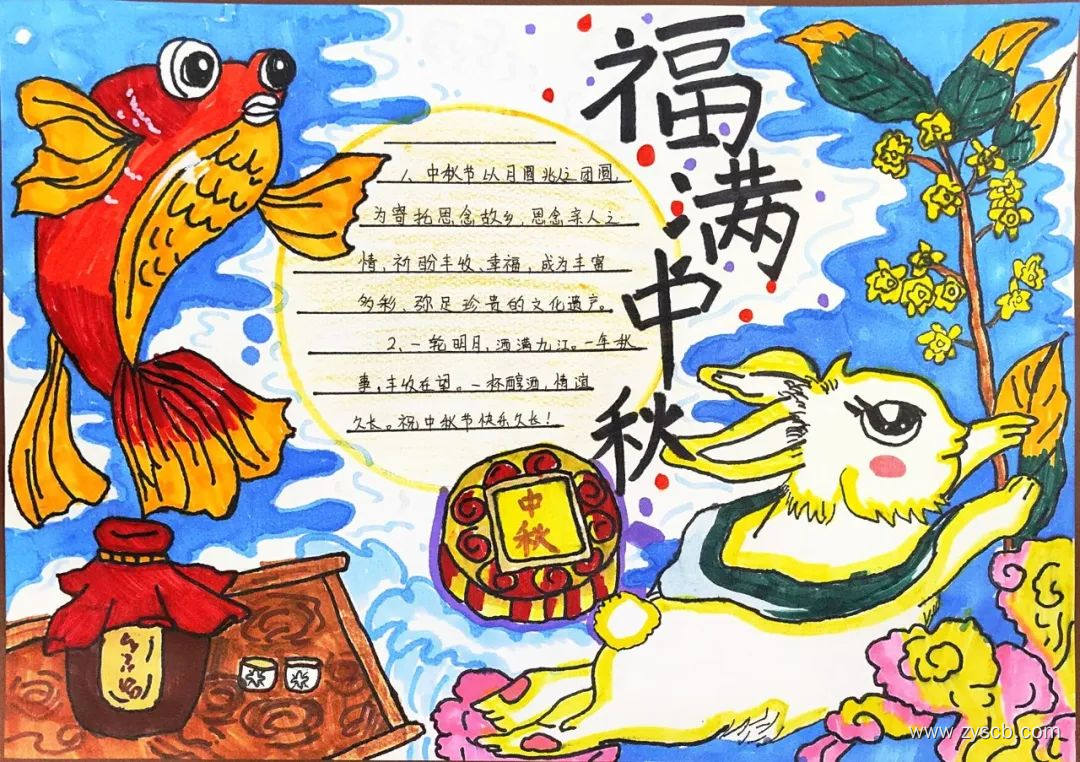 福满中秋
1、中秋节以月圆兆之团圆,
为寄托思念故乡,思念亲人之
情,祈盼丰收、幸福,成为丰富
多彩、弥足珍贵的文化遗产。
2、一轮明月,洒满九江。一年秋
事,丰收在望。一杯醇酒,情谊
久长。祝中秋节快乐久长!
中
秋
www.zyscb.com